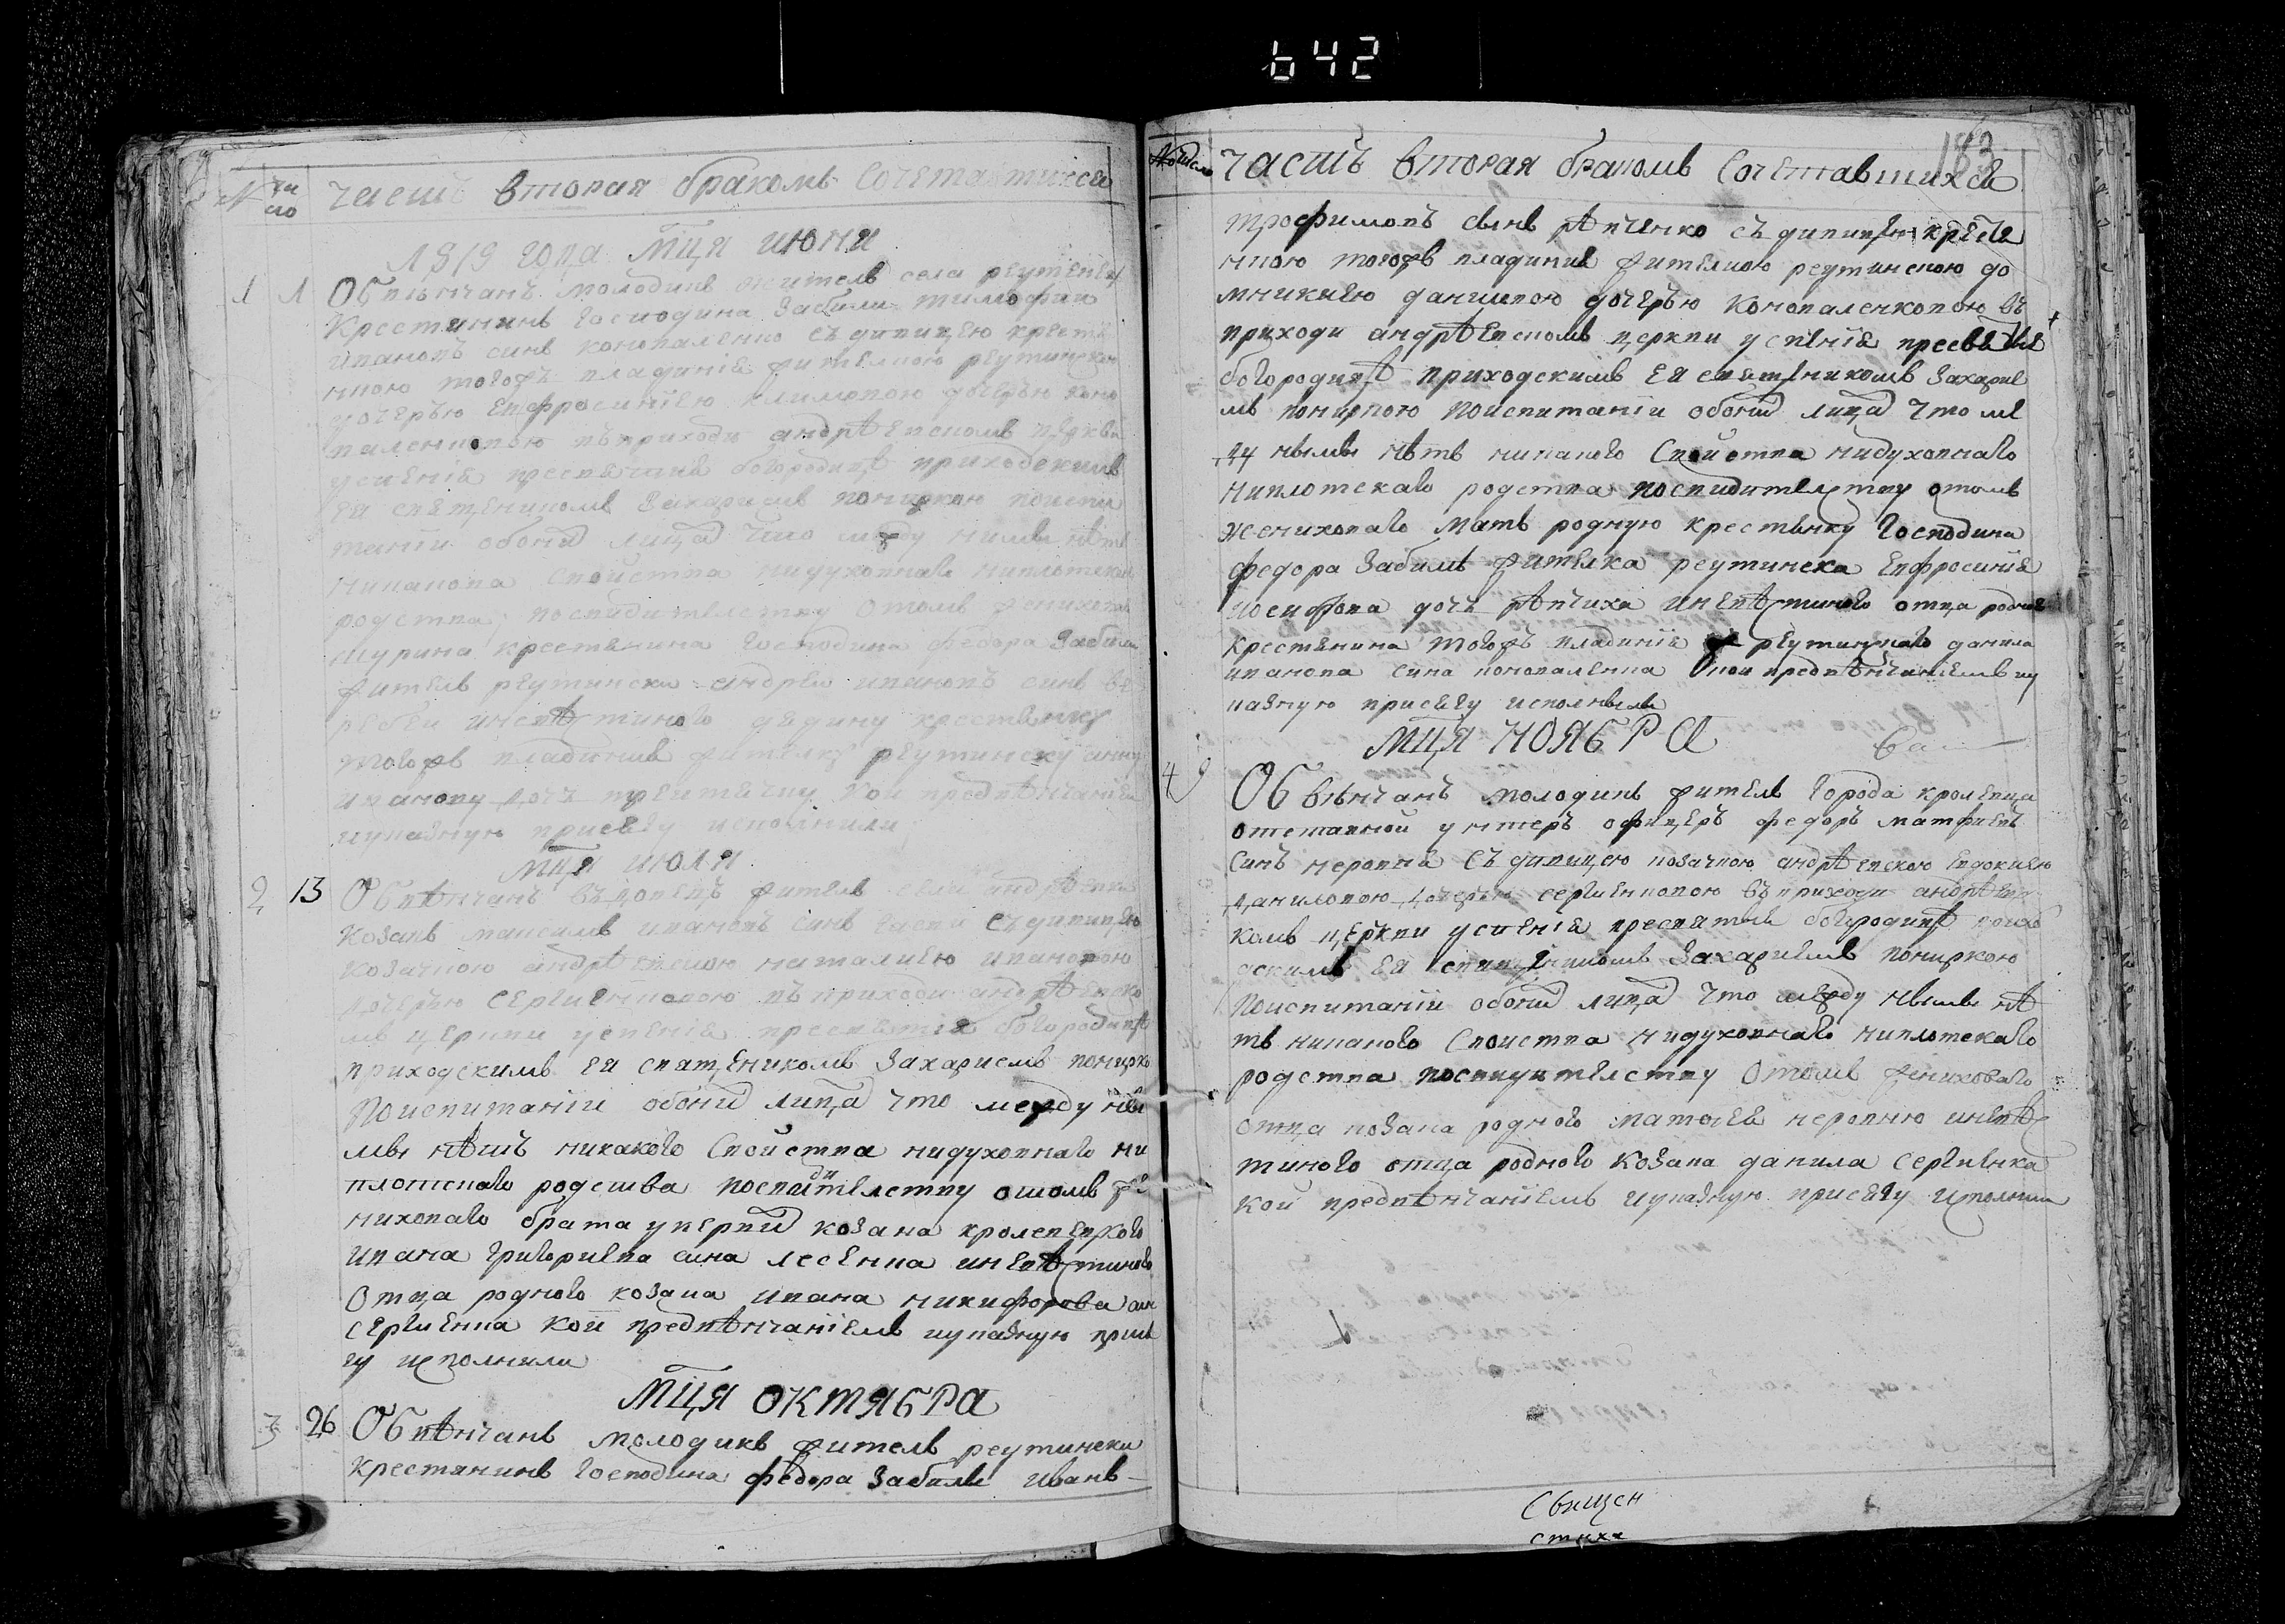 642
№ чи
сло
часть вторая бракомъ сочетавшихся
1819 года Мця июня
1 1 Обвѣнчанъ молодикъ житель села реутинец
Крестянинъ Господина Забили тимофии
ивановъ синъ коноваленко съ дивицею крестя
нкою тогожъ владиния жителкою реутинскою
дочерью Евфросиниею климовою дочерью коно
валенковою въ приходи андрѣевскомъ церкви
успения пресвятия богородици приходскимъ
Ея священикомъ Захариемъ пониркою поиспи
тании обоихъ лицъ что между ними нѣтъ
никакова свойства нидуховнаго ниплотскаго
родства, посвидителству о томъ жениховаго
шурина крестянина Господина федора Забили
житель реутински андреи ивановъ синъ ве
ребеи иневѣстиного дядину крестянку
тогожъ владиния жителку реутинску анну
иванову дочь кои предвѣнчаниемъ
иуказную присягу исполнили
Мця июля
2 13 Обвѣнчанъ въдовецъ житель села андрѣевки
козакъ максимъ ивановъ синъ съ дивицею
козачкою андрѣевскою наталиею ивановою
дочерью сергиенковою въ приходи андрѣевско
мъ церкви успения пресвятия богородици
приходскимъ ея священикомъ Захариемъ понирко
Поиспитании обоихъ лицъ что между ны
мы нѣтъ никакого свойства нидуховнаго ни
плотскаго родства посвидителству отомъ же
ниховаго брата козака кролевецкого
ивана григориева сина лесенка иневѣстиного
Отца родного козака ивана никифорова син
сергиенка кои предвѣнчаниемъ иуказную прися
гу исполнили
Мця октября
3 26 Обвѣнчанъ молодикъ житель реутински
крестянинъ Господина федора Забили иванъ
183
№ число часть вторая бракомъ сочетавшихся
трофимовъ синъ рѣпченко съ дивицею крестя
нкою тогожъ владиния жителкою реутинскою до
мникиею даниловою дочерью коноваленковою въ
приходи андрѣевскомъ церкви успѣния пресвятия
богородици приходскимъ ея священикомъ Захарие
мъ пониркою поиспитании обоихъ лицъ что ме
жду нымы нѣтъ никакого свойства нидуховнаго
ниплотскаго родства посвидителству отомъ
жениховаго мать родную крестянку Господина
федора Забили жителка реутинска Евфросиния
иосифова дочь рѣпчиха иневѣстиного отца родного
крестянина тогожъ владиния реутинскаго данила
иванова сина коноваленка кои предвѣнчаниемъ иу
казную присягу исполнили
Мця Ноября
4 9 Обвѣнчанъ молодикъ житель города кролевца
отставной унтеръ офицеръ федоръ матфиевъ
синъ неровня съ дивицею козачкою андрѣевскою евдокиею
даниловою дочерью сергиенковою въ приходи андрѣевс
комъ церкви успения пресвятия богородици прихо
дскимъ ея священикомъ Захариемъ пониркою
поиспитании обоихъ лицъ что между нымы нѣ
тъ никакого свойства нидуховнаго ниплотскаго
родства посвидителству отомъ жениховаго
отца козака родного матфея неровню иневѣс
тиного отца родного козака данила сергиенка
кои предвѣнчаниемъ иуказную присягу исполнили
Свищен
стиха